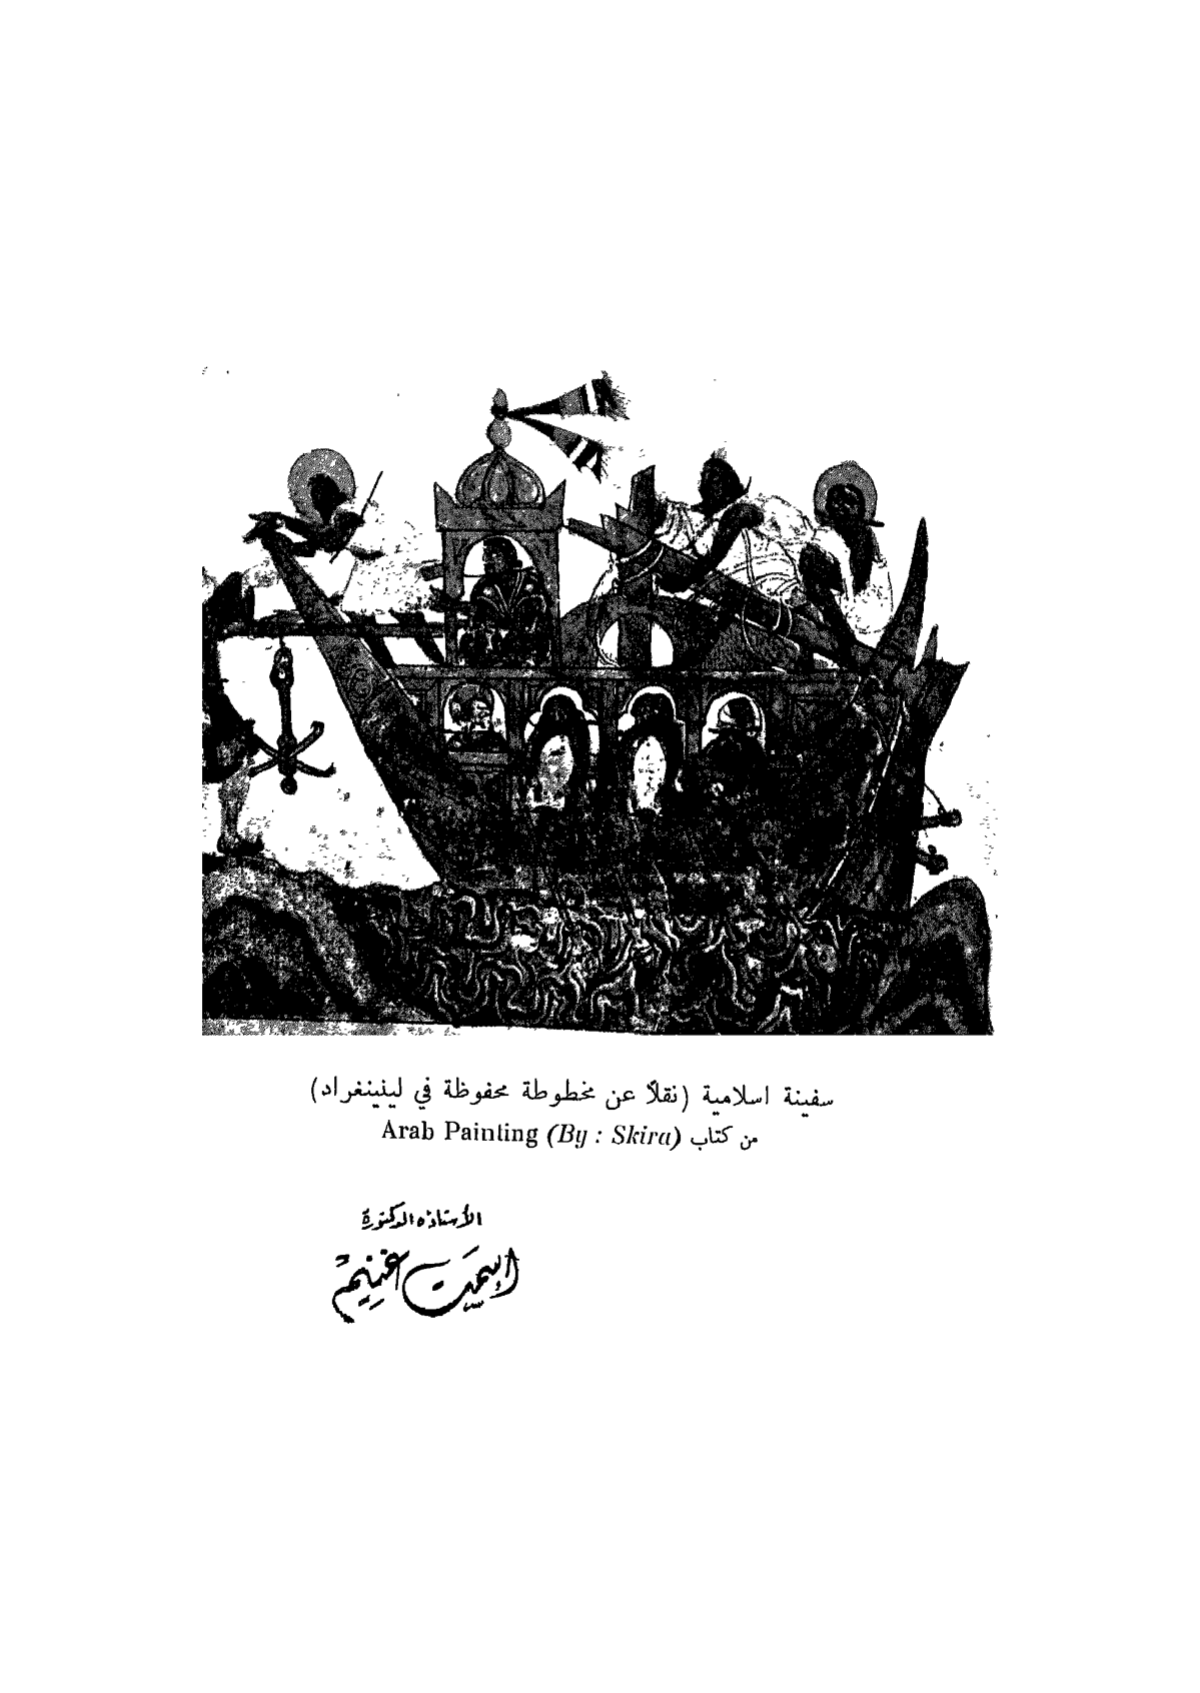 سفينة اسلامية (نقلاً عن مخطوطة محفوظة في لينينغراد)
من كتاب Arab Painting (By : Skira)
الأستاذه الدكتورة
إسميت غنيم